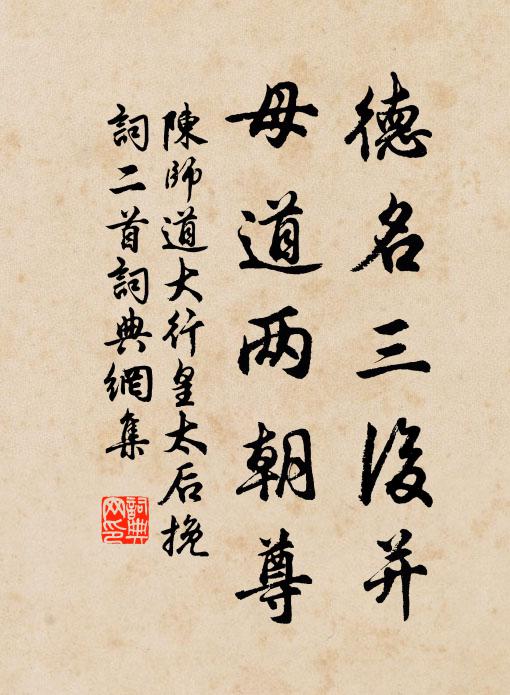 德名三後并
母道两朝尊
陳師道大行皇太后挽
詞二首詞典網集
詞典
网印